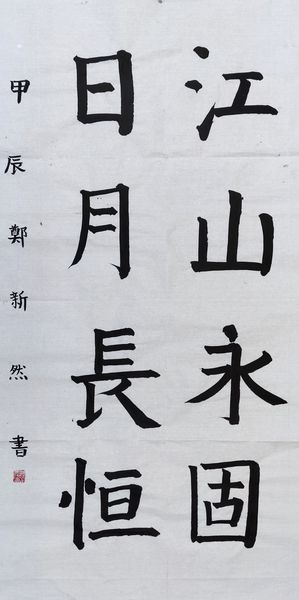 江山永固
日月長恒
甲辰鄭新然書